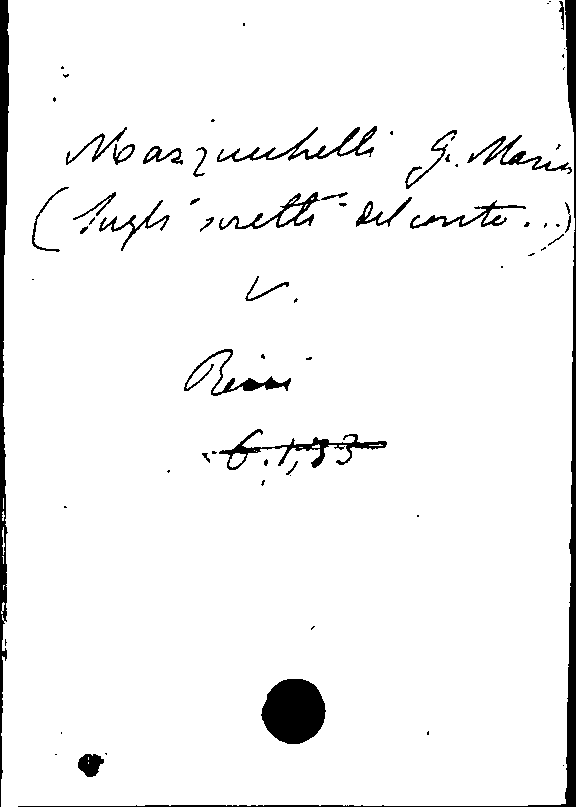 Mazzuchelli G. Maria
(Sugli scritti del conte...)
V.
Rissi
6.1,33